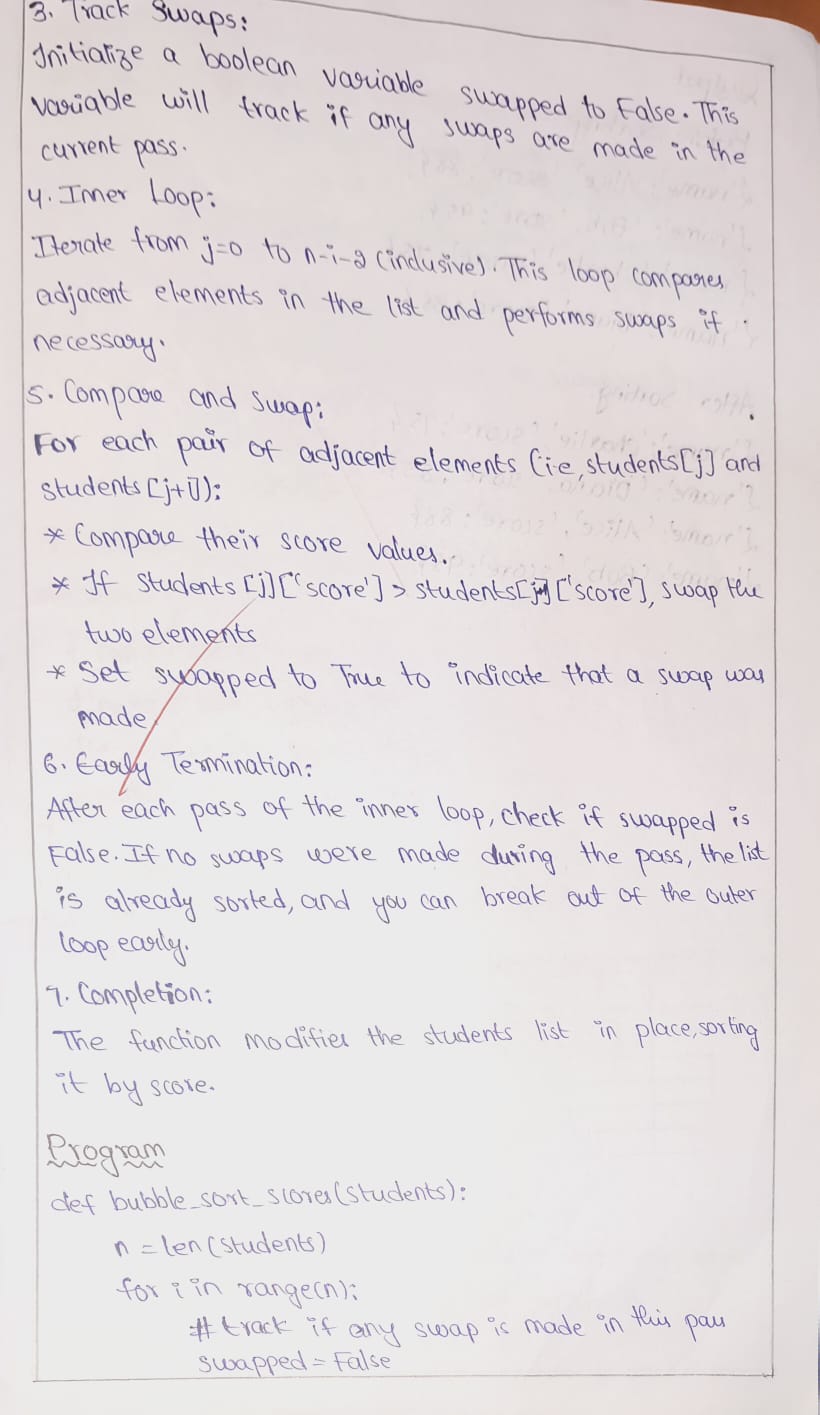 3. Track Swaps:
Initialize a boolean variable swapped to False. This
variable will track if any swaps are made in the
current pass.
4. Inner Loop:
Iterate from j=0 to n-i-2 (inclusive). This loop compares
adjacent elements in the list and performs swaps if
necessary.
5. Compare and Swap:
For each pair of adjacent elements (i.e, students[j] and
students[j+1]):
* Compare their score values.
* If students[j]['score'] > students[j+1]['score'], swap the
two elements
* Set swapped to True to indicate that a swap was
made
6. Early Termination:
After each pass of the inner loop, check if swapped is
False. If no swaps were made during the pass, the list
is already sorted, and you can break out of the outer
loop early.
7. Completion:
The function modifies the students list in place, sorting
it by score.
Program
def bubble_sort_scores(students):
n = len(students)
for i in range(n):
# track if any swap is made in this pass
swapped = False